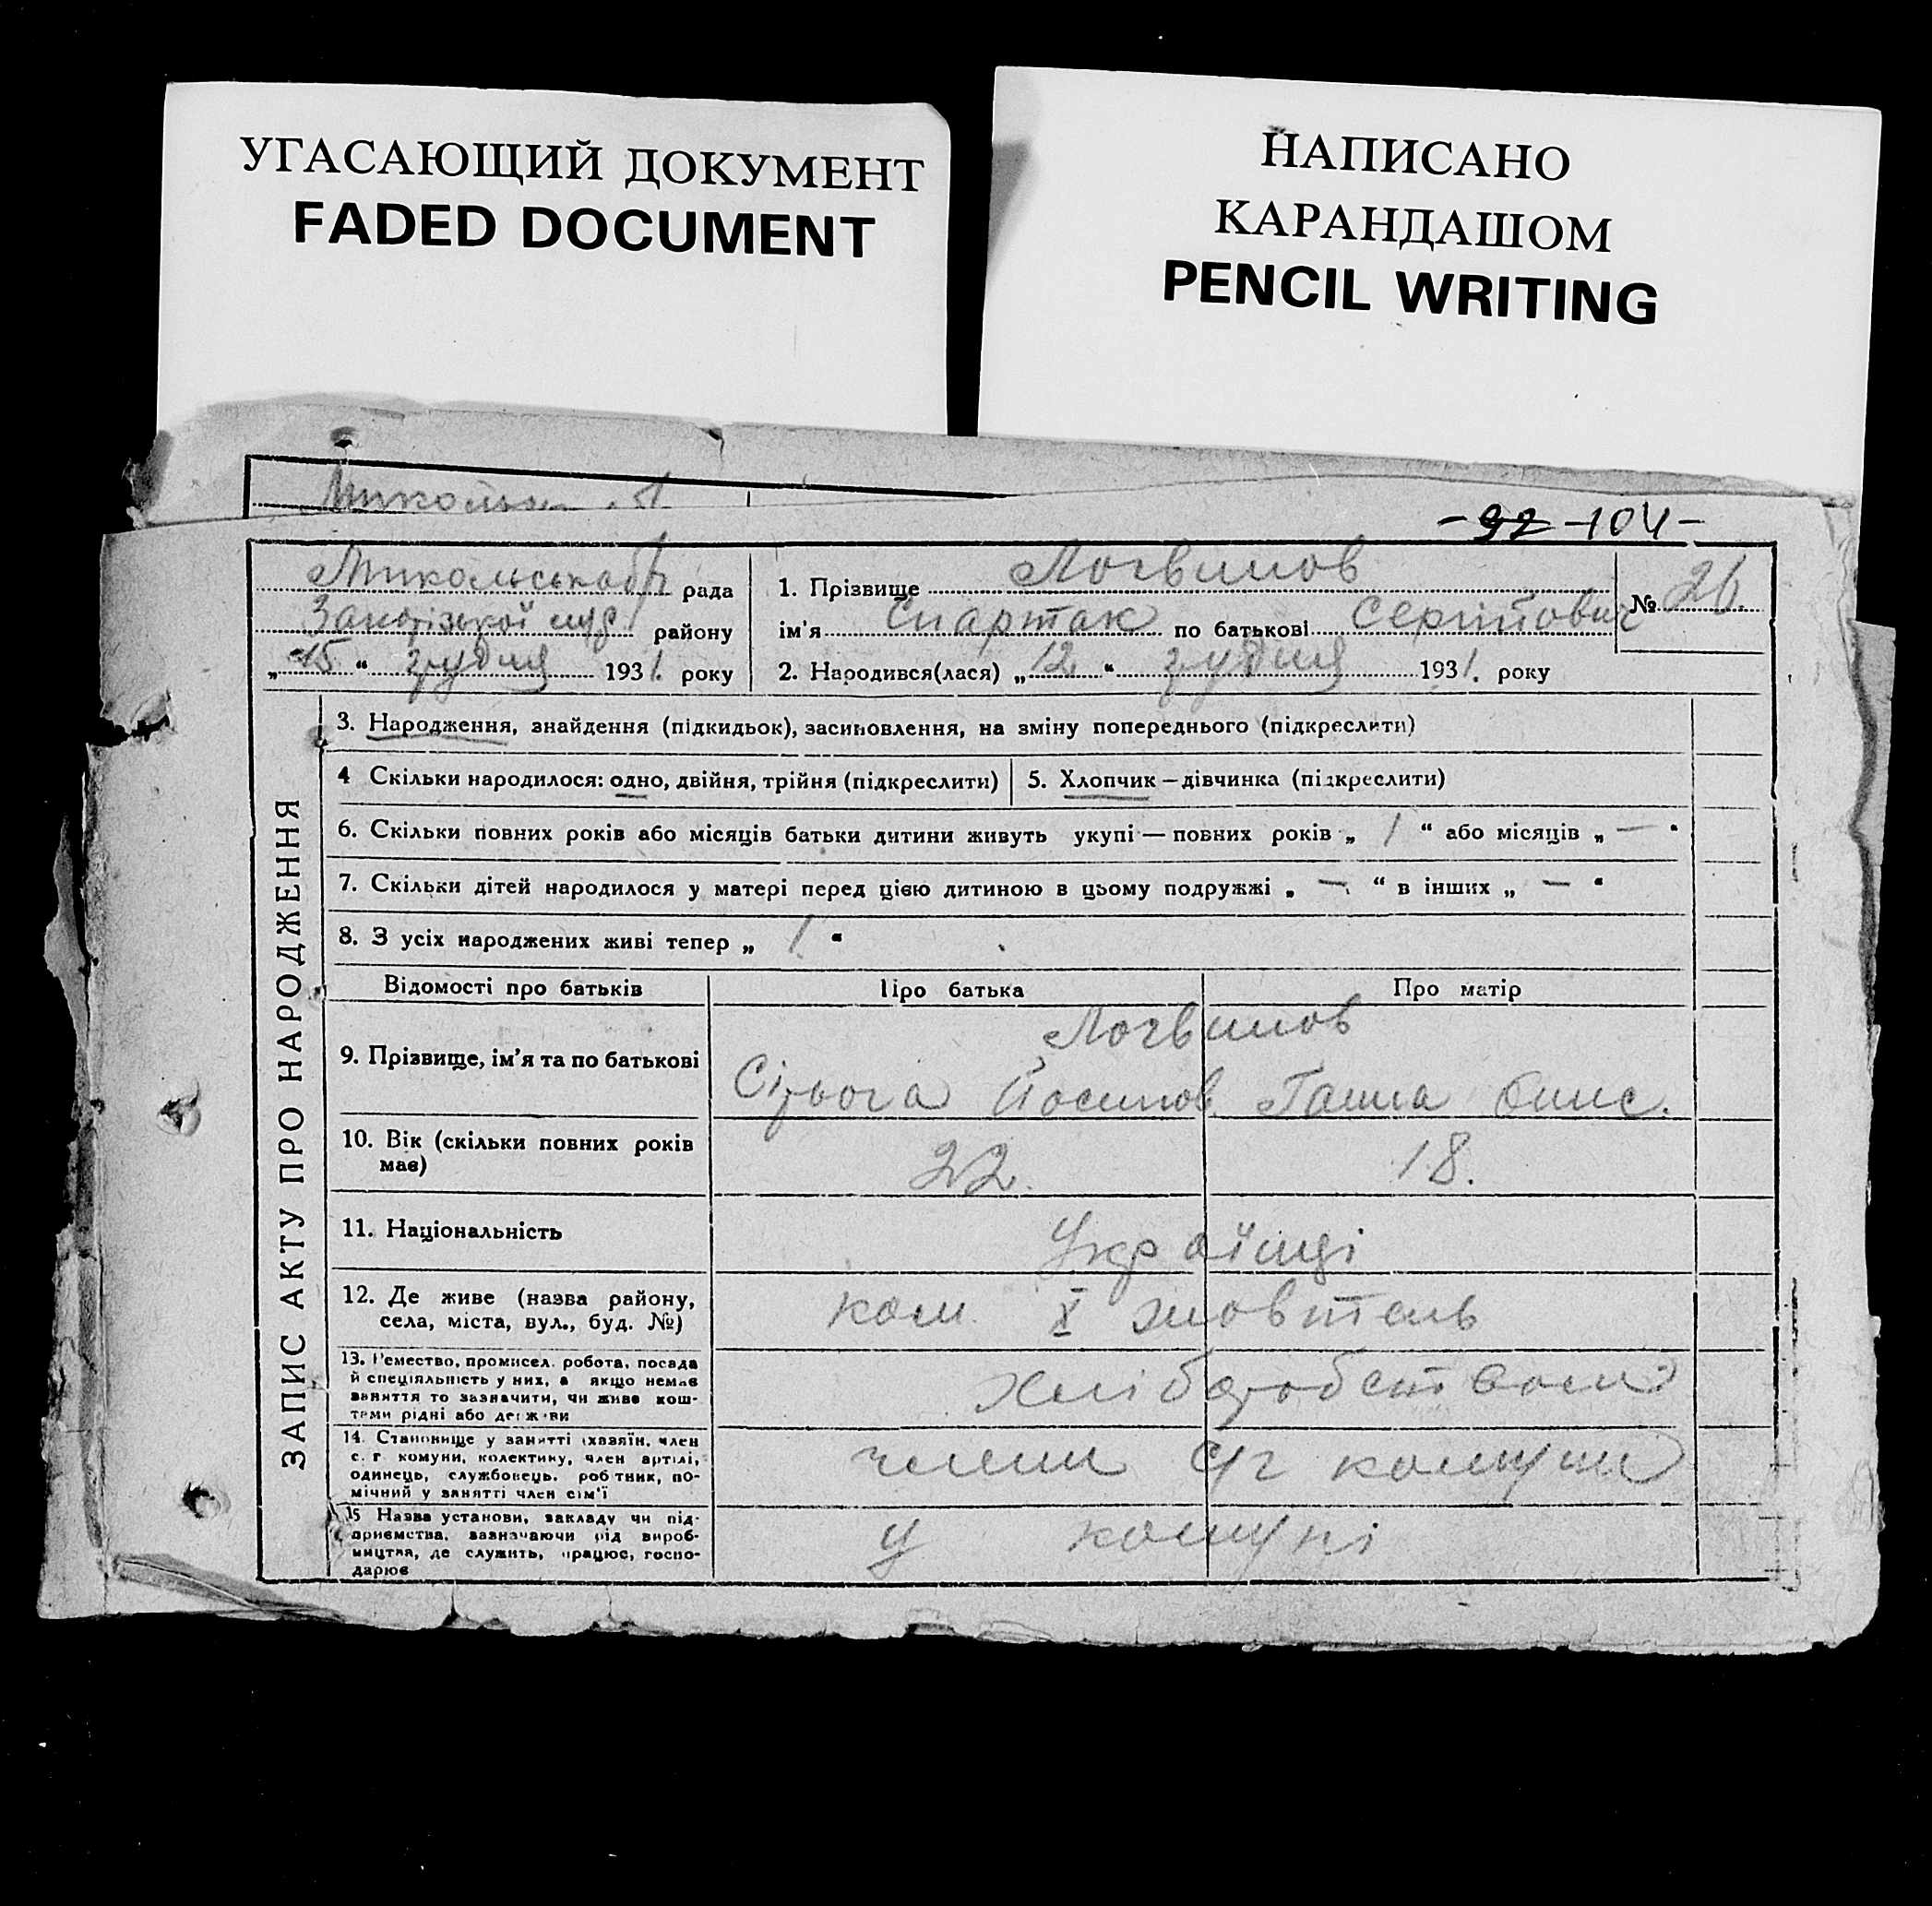 УГАСАЮЩИЙ ДОКУМЕНТ
FADED DOCUMENT
НАПИСАНО
КАРАНДАШОМ
PENCIL WRITING
- 92 - 104 -
Микольська рада
Запорізької району
„ 15 “ грудня 1931. року
1. Прізвище Логвинов
ім’я Спартак по батькові Сергійович
№ 26.
2. Народився(лася) „ 12 “ грудня 1931. року
ЗАПИС АКТУ ПРО НАРОДЖЕННЯ
3. Народження, знайдення (підкидьок), засиновлення, на зміну попереднього (підкреслити)
4 Скільки народилося: одно, двійня, трійня (підкреслити)
5. Хлопчик — дівчинка (підкреслити)
6. Скільки повних років або місяців батьки дитини живуть укупі — повних років „ 1 “ або місяців „ — “
7. Скільки дітей народилося у матері перед цією дитиною в цьому подружжі „ — “ в інших „ — “
8. З усіх народжених живі тепер „ 1. “
Відомості про батьків Про батька Про матір
9. Прізвище, ім’я та по батькові
Логвинов
Сірьога Йосипов. Ганна
10. Вік (скільки повних років має)
22. 18.
11. Національність
Українці
12. Де живе (назва району, села, міста, вул., буд. №)
ком. X жовтень
13. Ремество, промисел, робота, посада
й спеціяльність у них, а якщо немає
заняття то зазначити, чи живе кош-
тами рідні або держави
хліборобством
14. Становище у занятті (хазяїн, член
с. г. комуни, колективу, член артілі,
одинець, службовець, робітник, по-
мічний у занятті член сім’ї
члени с/г комуни
15 Назва установи, закладу чи під-
приємства, зазначаючи рід вироб-
ництва, де служить, працює, госпо-
дарює
у комуні